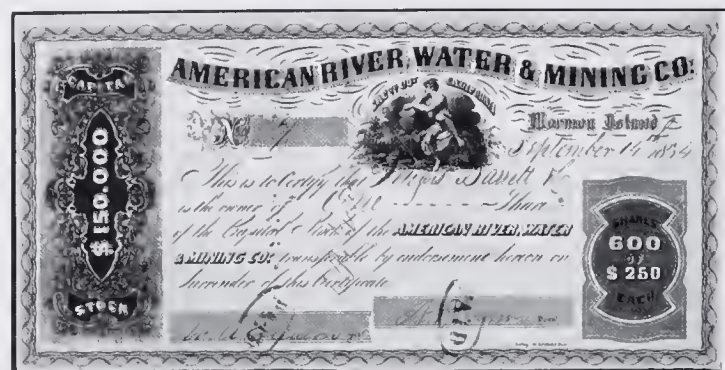 AMERICAN RIVER, WATER & MINING CO:
STATE OF CALIFORNIA
CAPITAL
$150.000
STOCK
No
Mormon Island
September 14th 1854
This is to Certify that Barrett
is the owner of One Share
of the Capital Stock of the AMERICAN RIVER, WATER
& MINING CO: transferable by endorsement hereon on
Surrender of this Certificate
SHARES
600
OF
$250
EACH
PAID
PAID